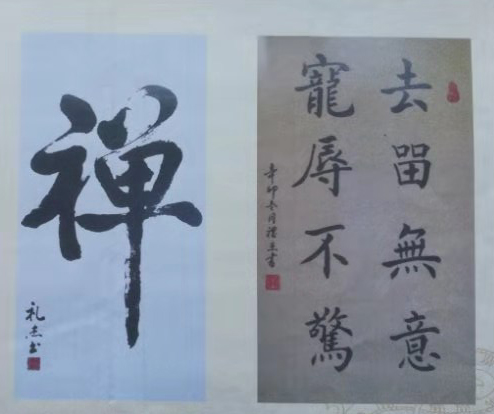 禅
礼志书
去留無意
寵辱不驚
辛卯冬月禮志書